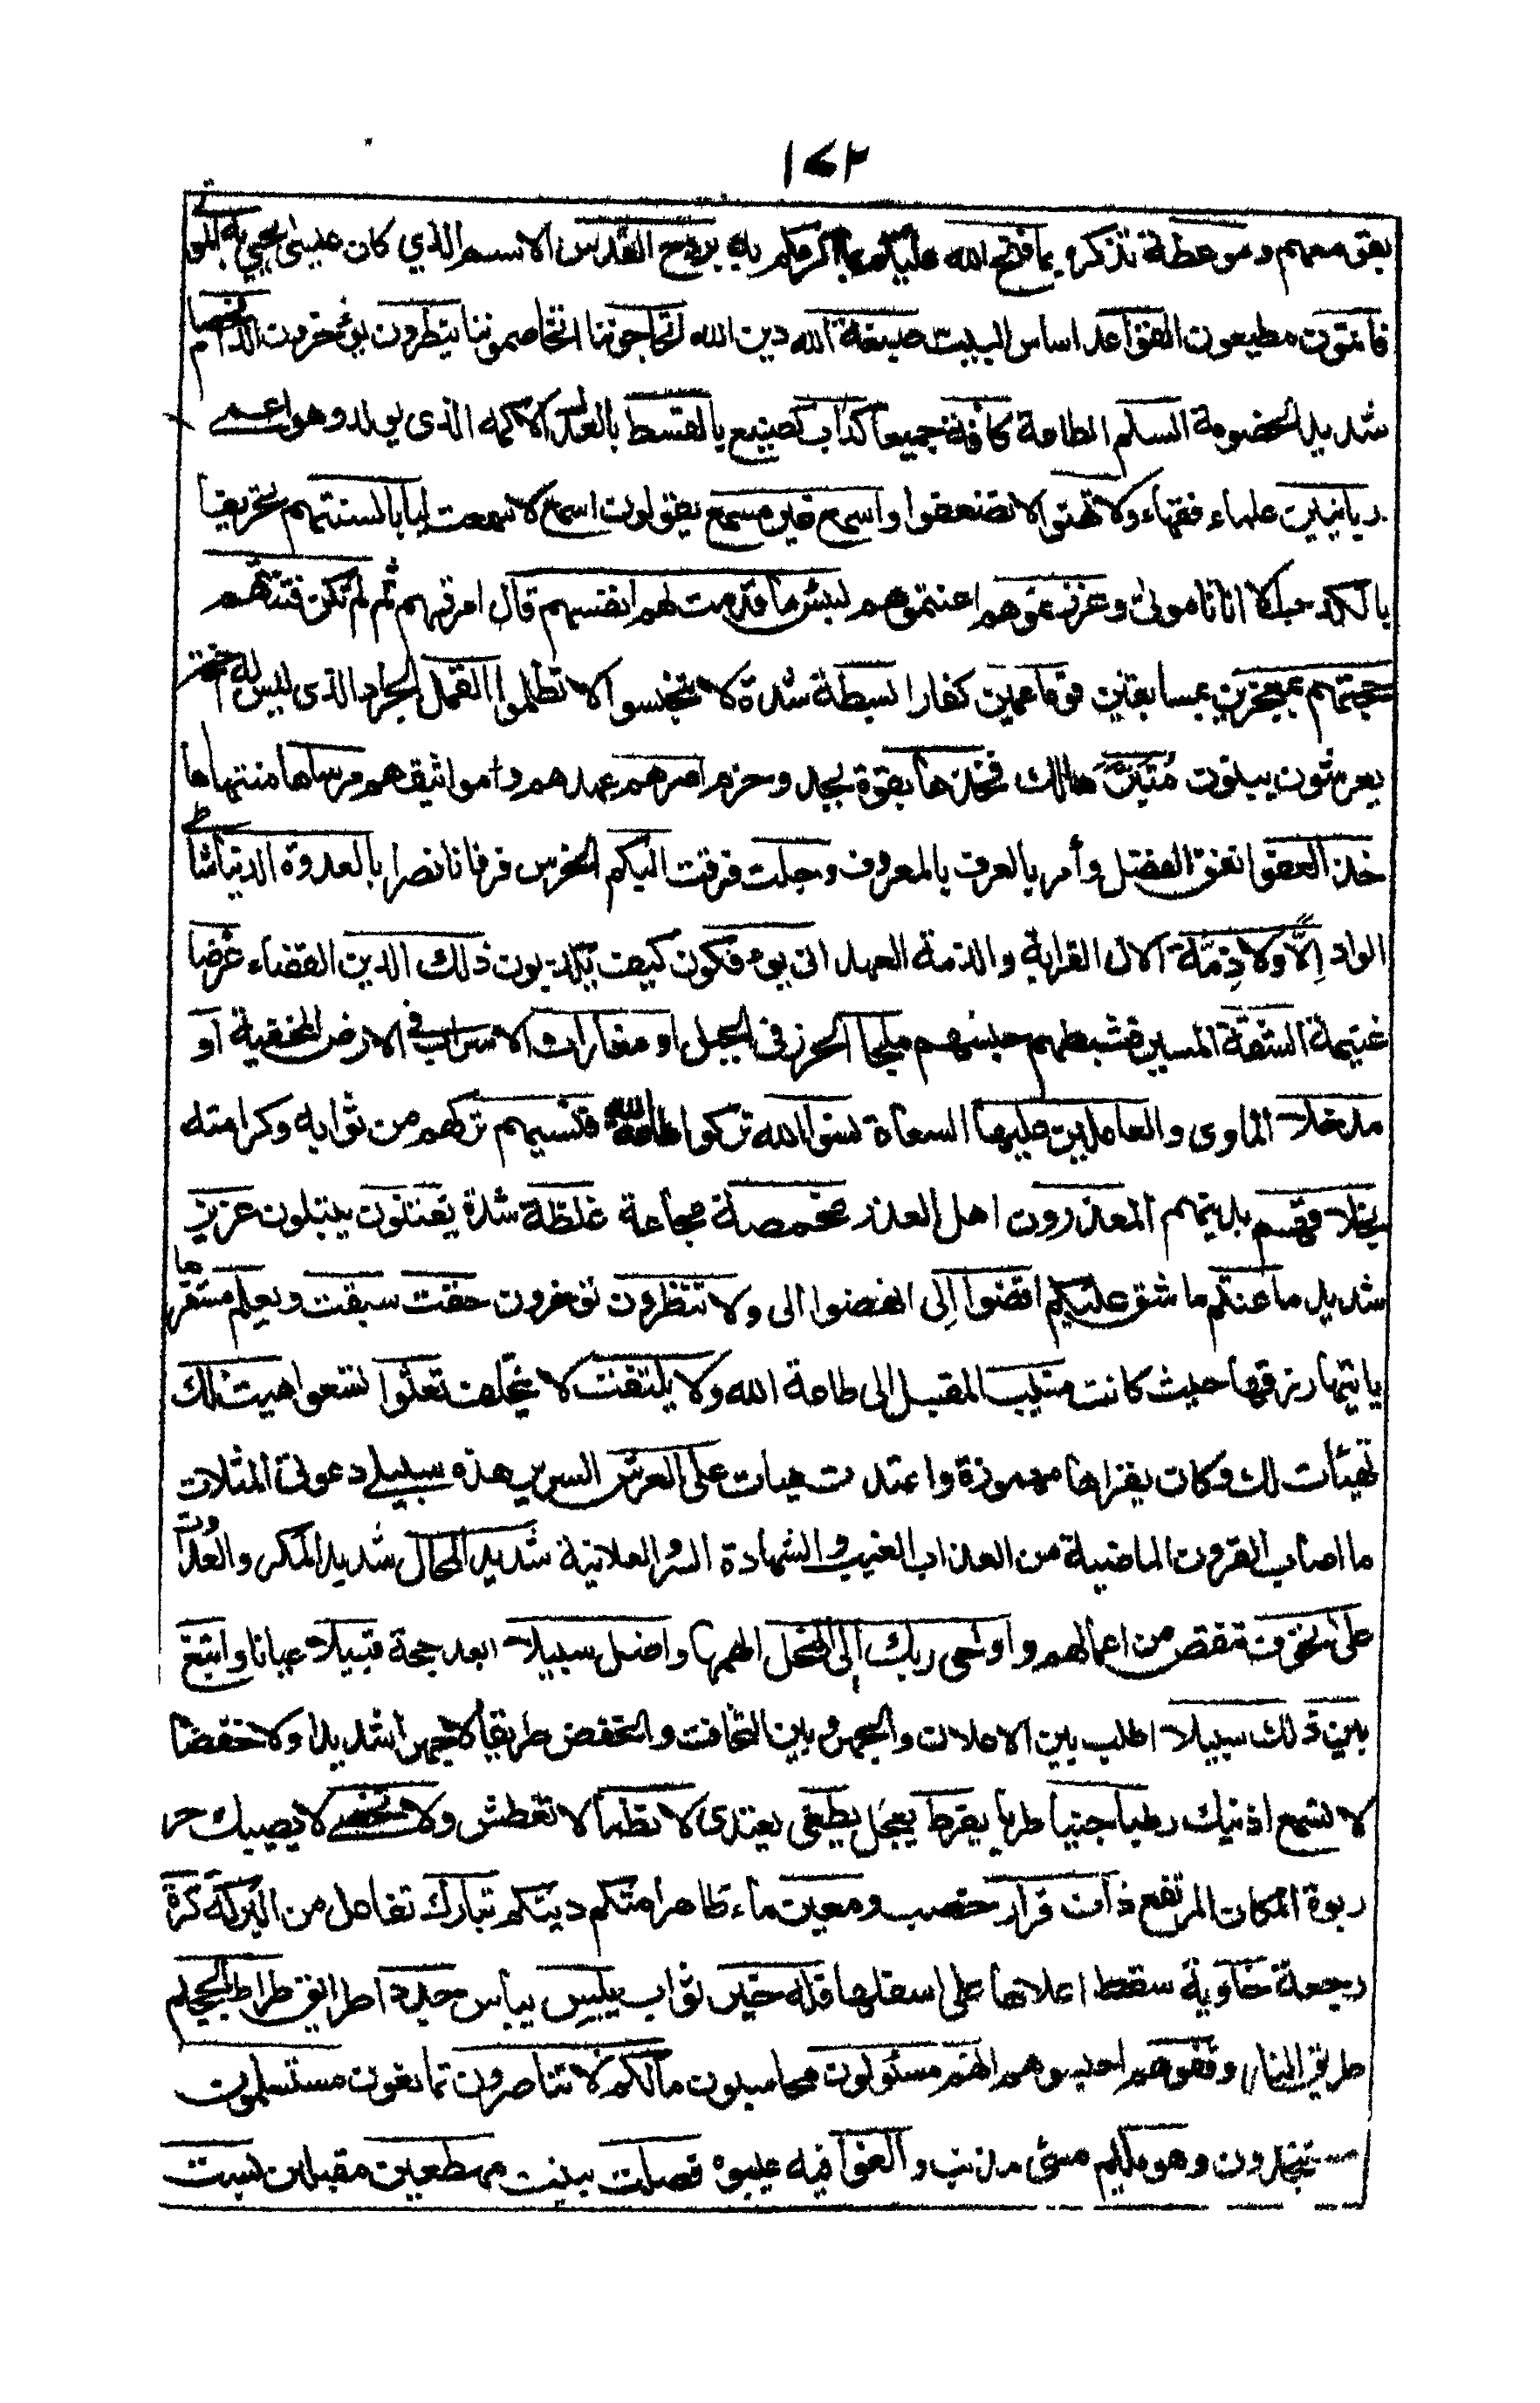 ١٤٢
بقي معهم وموعظة تذكرة بما فتح الله عليكم بما اكرمكم به بروح القدس الاسم الذي كان عيسى يحيي به الموتى
قانتون مطيعون القواعد اساس البيت صبغة الله دين الله اتحاجوننا اتخاصموننا ينظرون يؤخرون الد الخصام
شديد الخصومة السلم الطاعة كافة جميعا كداب كصنيع بالقسط بالعدل الاكمه الذى يولد وهو اعمى
ربانيين علماء فقهاء ولا تهنوا لا تضعفوا واسمع غير مسمع يقولون اسمع لا سمعت ليا بالسنتهم تحريفا
بالكذب الا اناثا موتى وعزرتموهم اعنتموهم لبئس ما قدمت لهم انفسهم قال امرتهم ثم لم تكن فتنتهم
حجتهم بمعجزين بسابقين قوما عمين كفارا بسطة شدة لا تبخسوا لا تظلموا القمل الجراد الذى ليس له اجنحة
يعرشون يبنون متبر هالك فخذها بقوة بجد وحزم اصرهم عهدهم ومواثيقهم مرساها منتهاها
خذ العفو انفق الفضل وأمر بالعرف بالمعروف وجلت فرقت البكم الخرس فرقانا نصرا بالعدوة الدنيا شاطئ
الواد الا ولا ذمة الال القرابة والذمة العهد انى يؤفكون كيف يكذبون ذلك الدين القضاء عرضا
غنيمة الشقة المسير فثبطهم حبسهم ملجا الحرز فى الجبل او مغارات الاسراب فى الارض المخفية او
مدخلا الماوى والعاملين عليها السعاة نسوا الله تركوا طاعة الله فنسيهم تركهم من ثوابه وكرامته
بخلاقهم بدينهم المعذرون اهل العذر مخمصة مجاعة غلظة شدة يفتنون يبتلون عزيز
شديد ما عنتم ما شق عليكم اقضوا الى انهضوا الى ولا تنظرون تؤخرون حقت سبقت ويعلم مستقرها
ياتيها رزقها حيث كانت منيب المقبل الى طاعة الله ولا يلتفت لا يتخلف تعثوا تسعوا هيت لك
تهيأت لك وكان يقراها مهموزة واعتدت هيات على العرش السرير هذه سبيلي دعوتى المثلات
ما اصاب القرون الماضية من العذاب الغيب والشهادة السر والعلانية شديد المحال شديد المكر والعداوة
على تخوف تنقص من اعمالهم واوحى ربك الى النحل الهمها واضل سبيلا ابعد حجة قبيلا عيانا وابتغ
بين ذلك سبيلا اطلب بين الاعلان والجهر وبين التخافت والخفض طريقا لا جهرا شديدا ولا خفضا
لا تسمع اذنيك رطبا جنيا طريا يفرط يعجل يطغى يعتدى لا تظما لا تعطش ولا تضحى لا يصيبك حر
ربوة المكان المرتفع ذات قرار خصب ومعين ماء ظاهر امتكم دينكم تبارك تفاعل من البركة كرة
رجعة خاوية سقط اعلاها على اسفلها فله خير ثواب يبلس ييأس جدد طرائق صراط الجحيم
طريق النار وقفوهم احبسوهم انهم مسئولون محاسبون مالكم لا تناصرون تمانعون مستسلمون
مستنجدون وهو مليم مسئ مذنب والغوا فيه عيبوه فصلت بينت مهطعين مقبلين بست